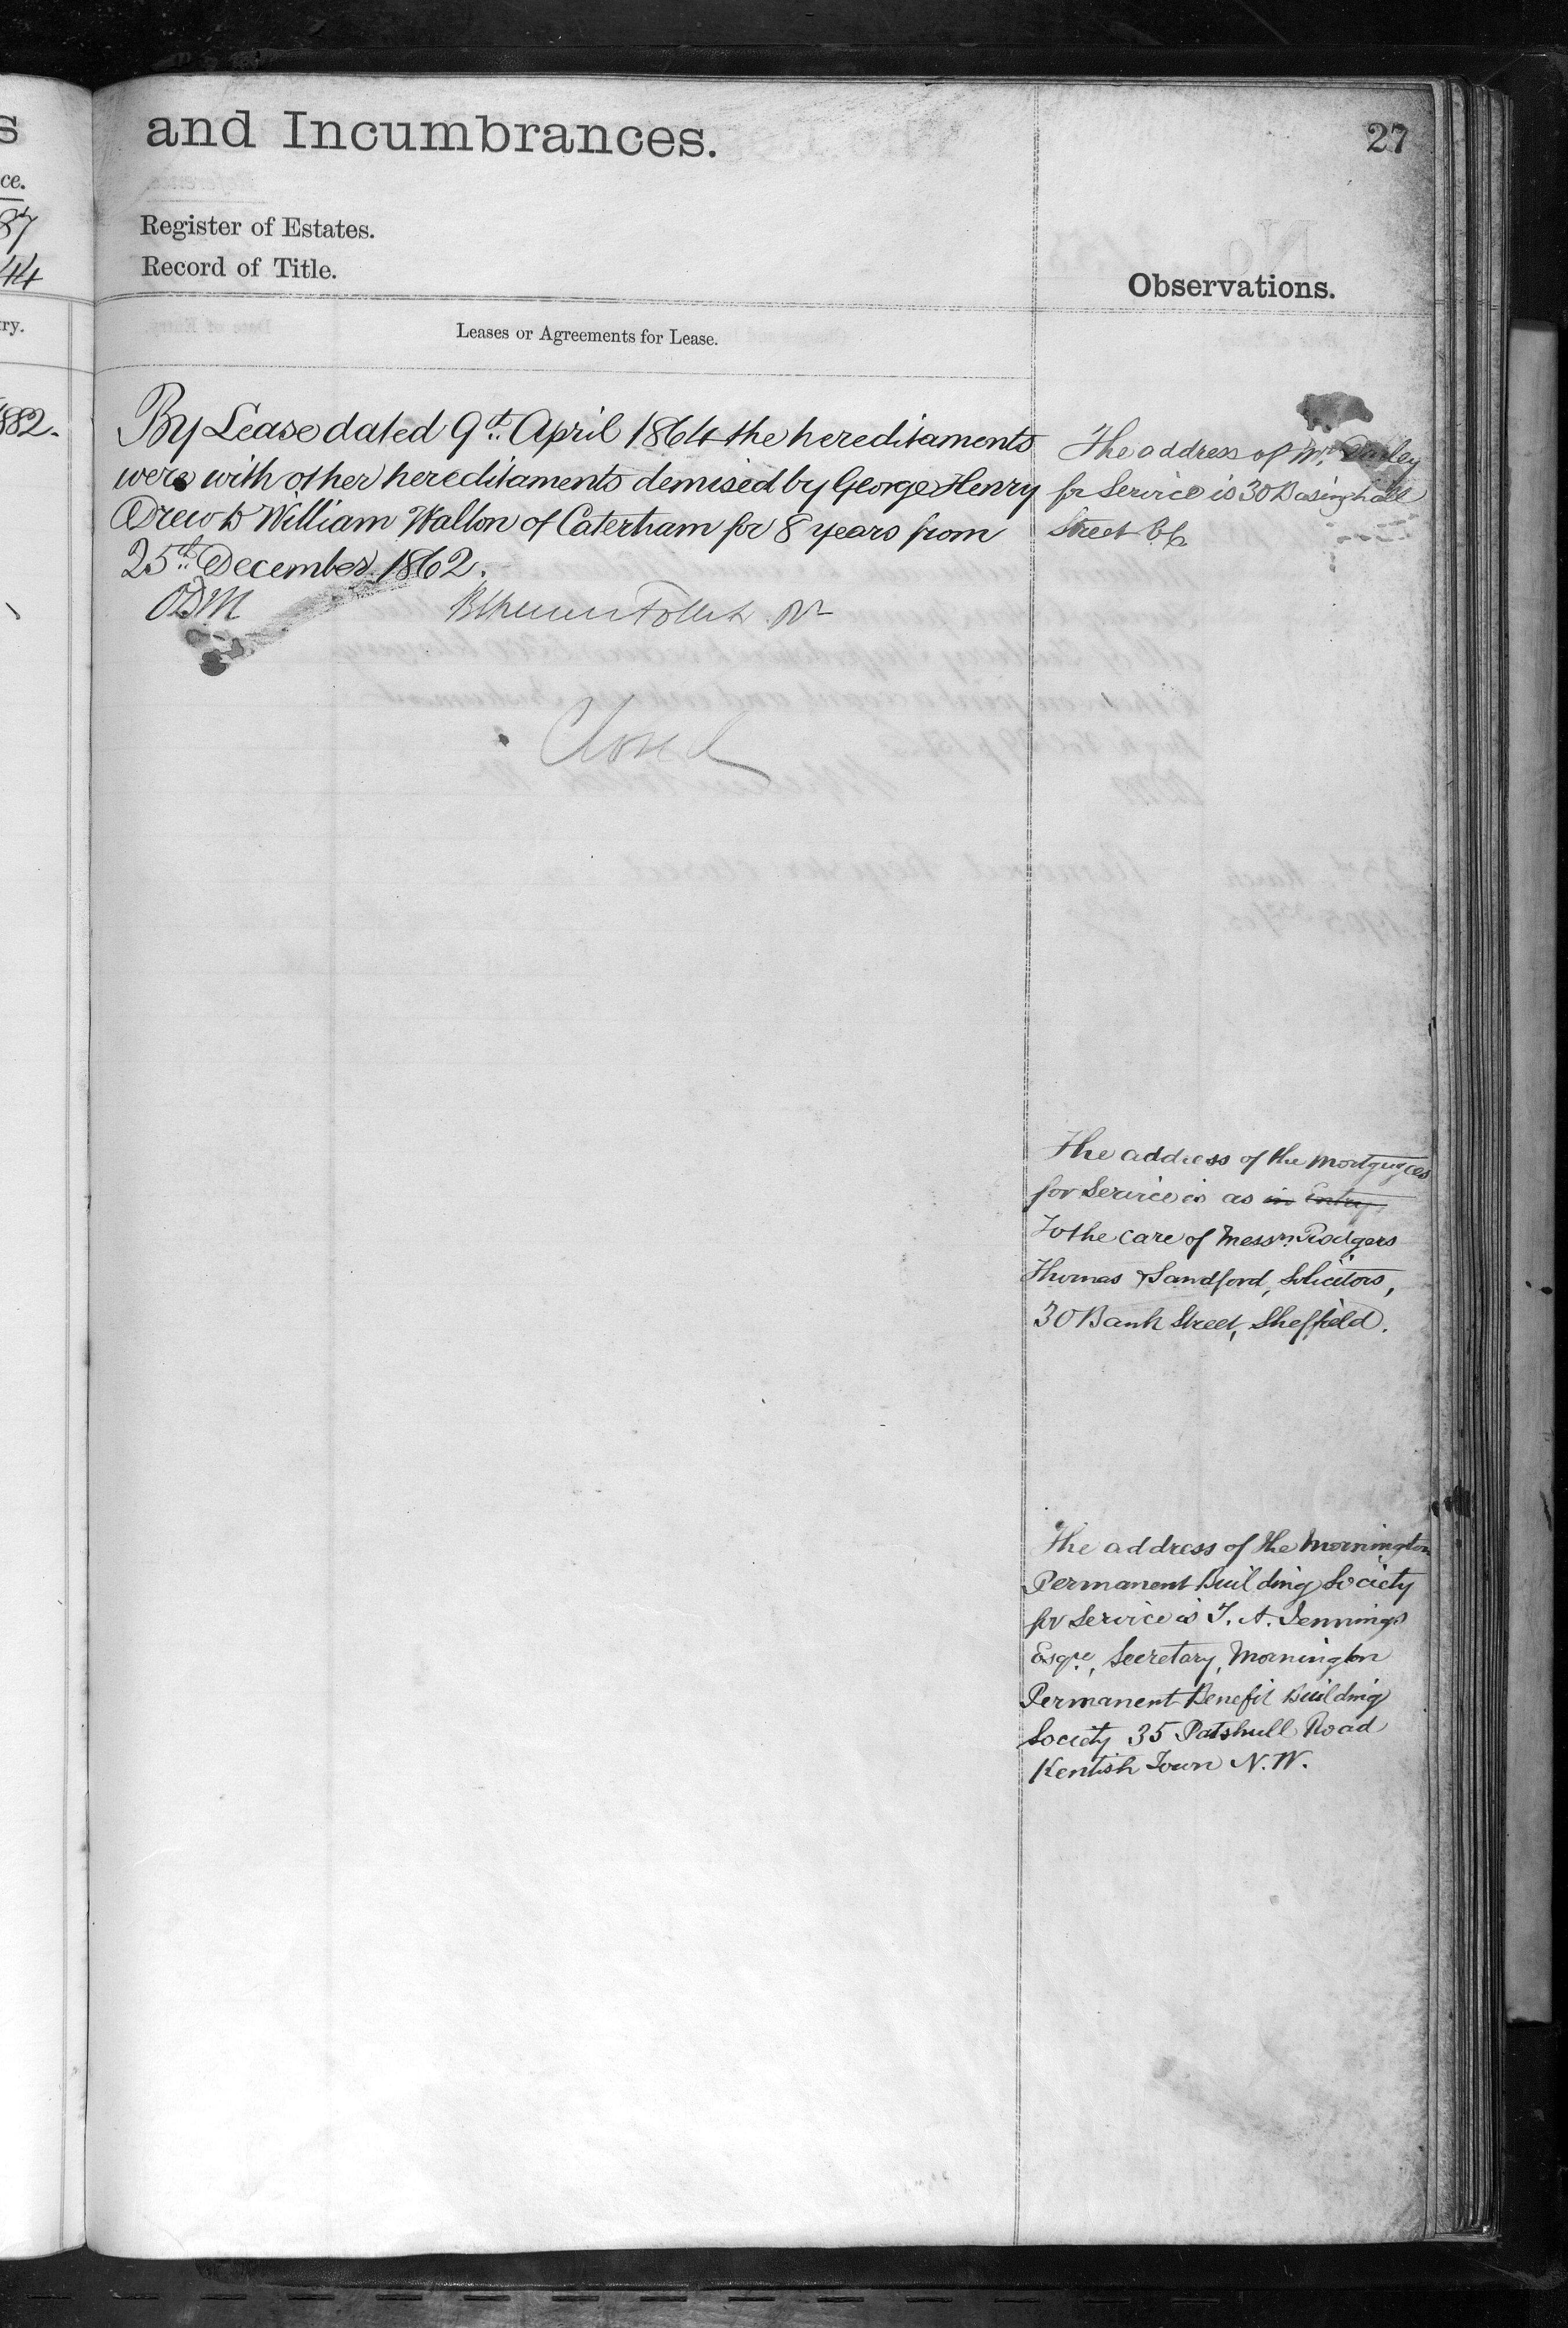 and Incumbrances.
27
Register of Estates.
Record of Title.
Observations.
Leases or Agreements for Lease.
By Lease dated 9th April 1864 the hereditaments
were with other hereditaments demised by George Henry
Drew to William Walton of Caterham for 8 years from
25th December 1862.
Closed
The address of Mr. Darley
for Service is 30 Basinghall
Street E.C.
The address of the Mortgagees
for Service is as in Entry
To the care of Messrs. Rodgers
Thomas & Sandford, Solicitors,
30 Bank Street, Sheffield.
The address of the Mornington
Permanent Building Society
for Service is T. A. Jennings
Esqre, Secretary, Mornington
Permanent Benefit Building
Society 35 Patshull Road
Kentish Town N.W.
s
ce.
87
44
ry.
882.